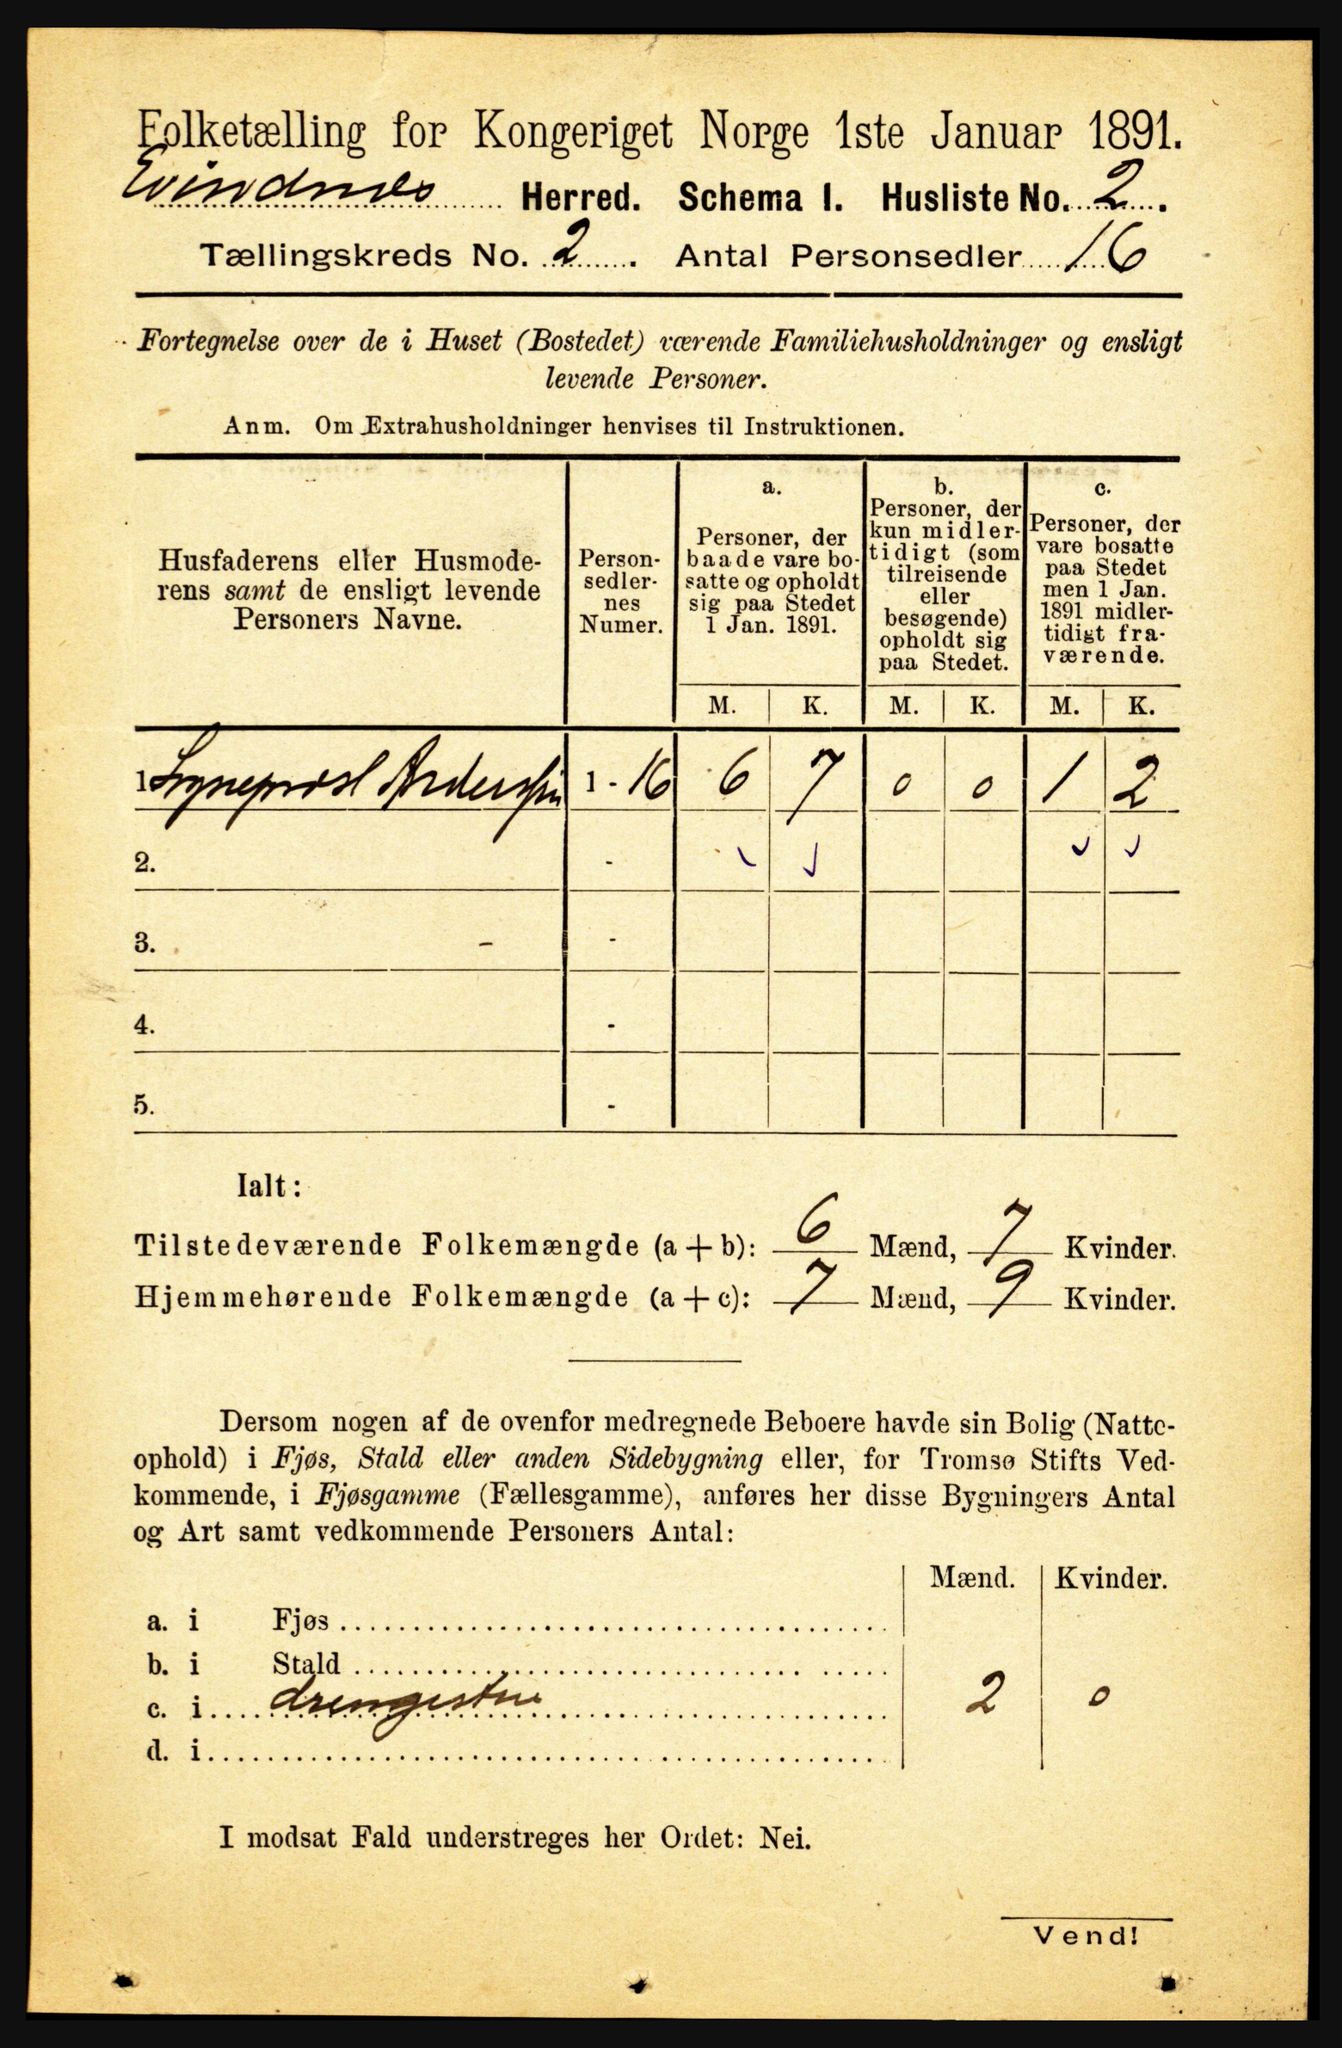 Folketælling for Kongeriget Norge 1ste Januar 1891.
Evindnes Herred. Schema I. Husliste No. 2.
Tællingskreds No. 2. Antal Personsedler 16
Fortegnelse over de i Huset (Bostedet) værende Familiehusholdninger og ensligt
levende Personer.
Anm. Om Extrahusholdninger henvises til Instruktionen.
Husfaderens eller Husmode-
rens samt de ensligt levende
Personers Navne.
Person-
sedler-
nes
Numer.
a.
Personer, der
baade vare bo-
satte og opholdt
sig paa Stedet
1 Jan. 1891.
b.
Personer, der
kun midler-
tidigt (som
tilreisende
eller
besøgende)
opholdt sig
paa Stedet.
c.
Personer, der
vare bosatte
paa Stedet
men 1 Jan.
1891 midler-
tidigt fra-
værende.
M. K. M. K. M. K.
1 Sogneprest Anderssen 1 - 16 6 7 0 0 1 2
2. -
3. -
4. -
5. -
Ialt:
Tilstedeværende Folkemængde (a + b): 6 Mænd, 7 Kvinder.
Hjemmehørende Folkemængde (a + c): 7 Mænd, 9 Kvinder.
Dersom nogen af de ovenfor medregnede Beboere havde sin Bolig (Natte-
ophold) i Fjøs, Stald eller anden Sidebygning eller, for Tromsø Stifts Ved-
kommende, i Fjøsgamme (Fællesgamme), anføres her disse Bygningers Antal
og Art samt vedkommende Personers Antal:
Mænd. Kvinder.
a. i Fjøs
b. i Stald
c. i drengestue 2 0
d. i
I modsat Fald understreges her Ordet: Nei.
Vend!